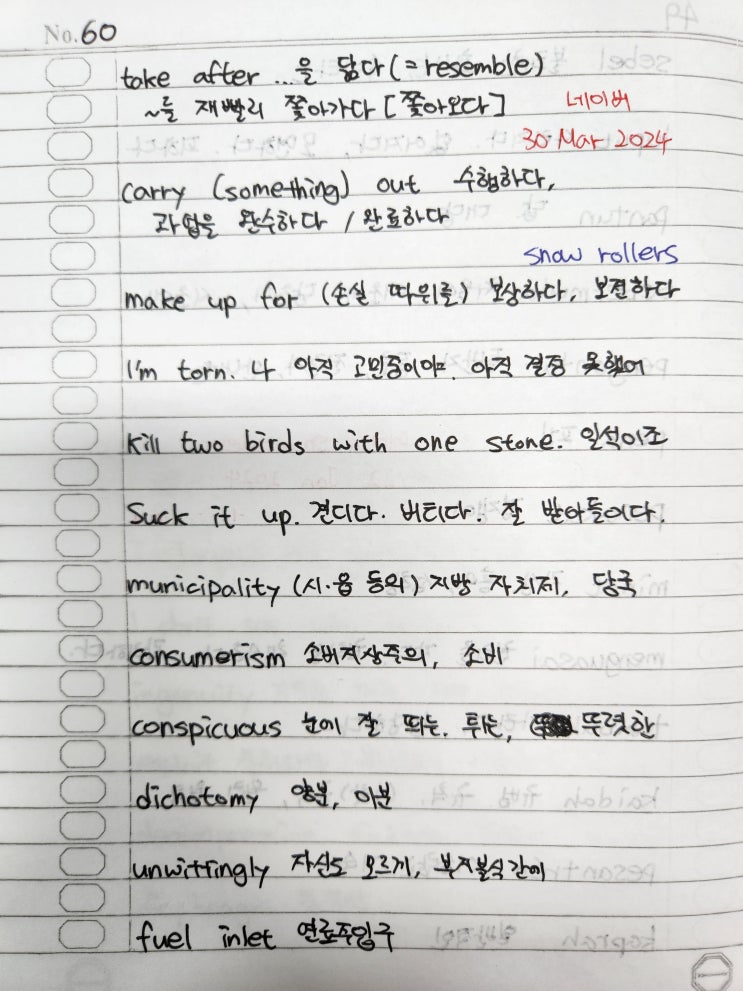 No. 60
take after ...을 닮다 (= resemble)
~를 재빨리 쫓아가다 [쫓아오다] 네이버
30 Mar 2024
carry (something) out 수행하다,
과업을 완수하다 / 완료하다
snow rollers
make up for (손실 따위를) 보상하다, 보전하다
I'm torn. 나 아직 고민중이야. 아직 결정 못했어
Kill two birds with one stone. 일석이조
Suck it up. 견디다. 버티다. 잘 받아들이다.
municipality (시·읍 등의) 지방 자치제, 당국
consumerism 소비지상주의, 소비
conspicuous 눈에 잘 띄는. 튀는, 뚜렷한
dichotomy 양분, 이분
unwittingly 자신도 모르게, 부지불식간에
fuel inlet 연료주입구